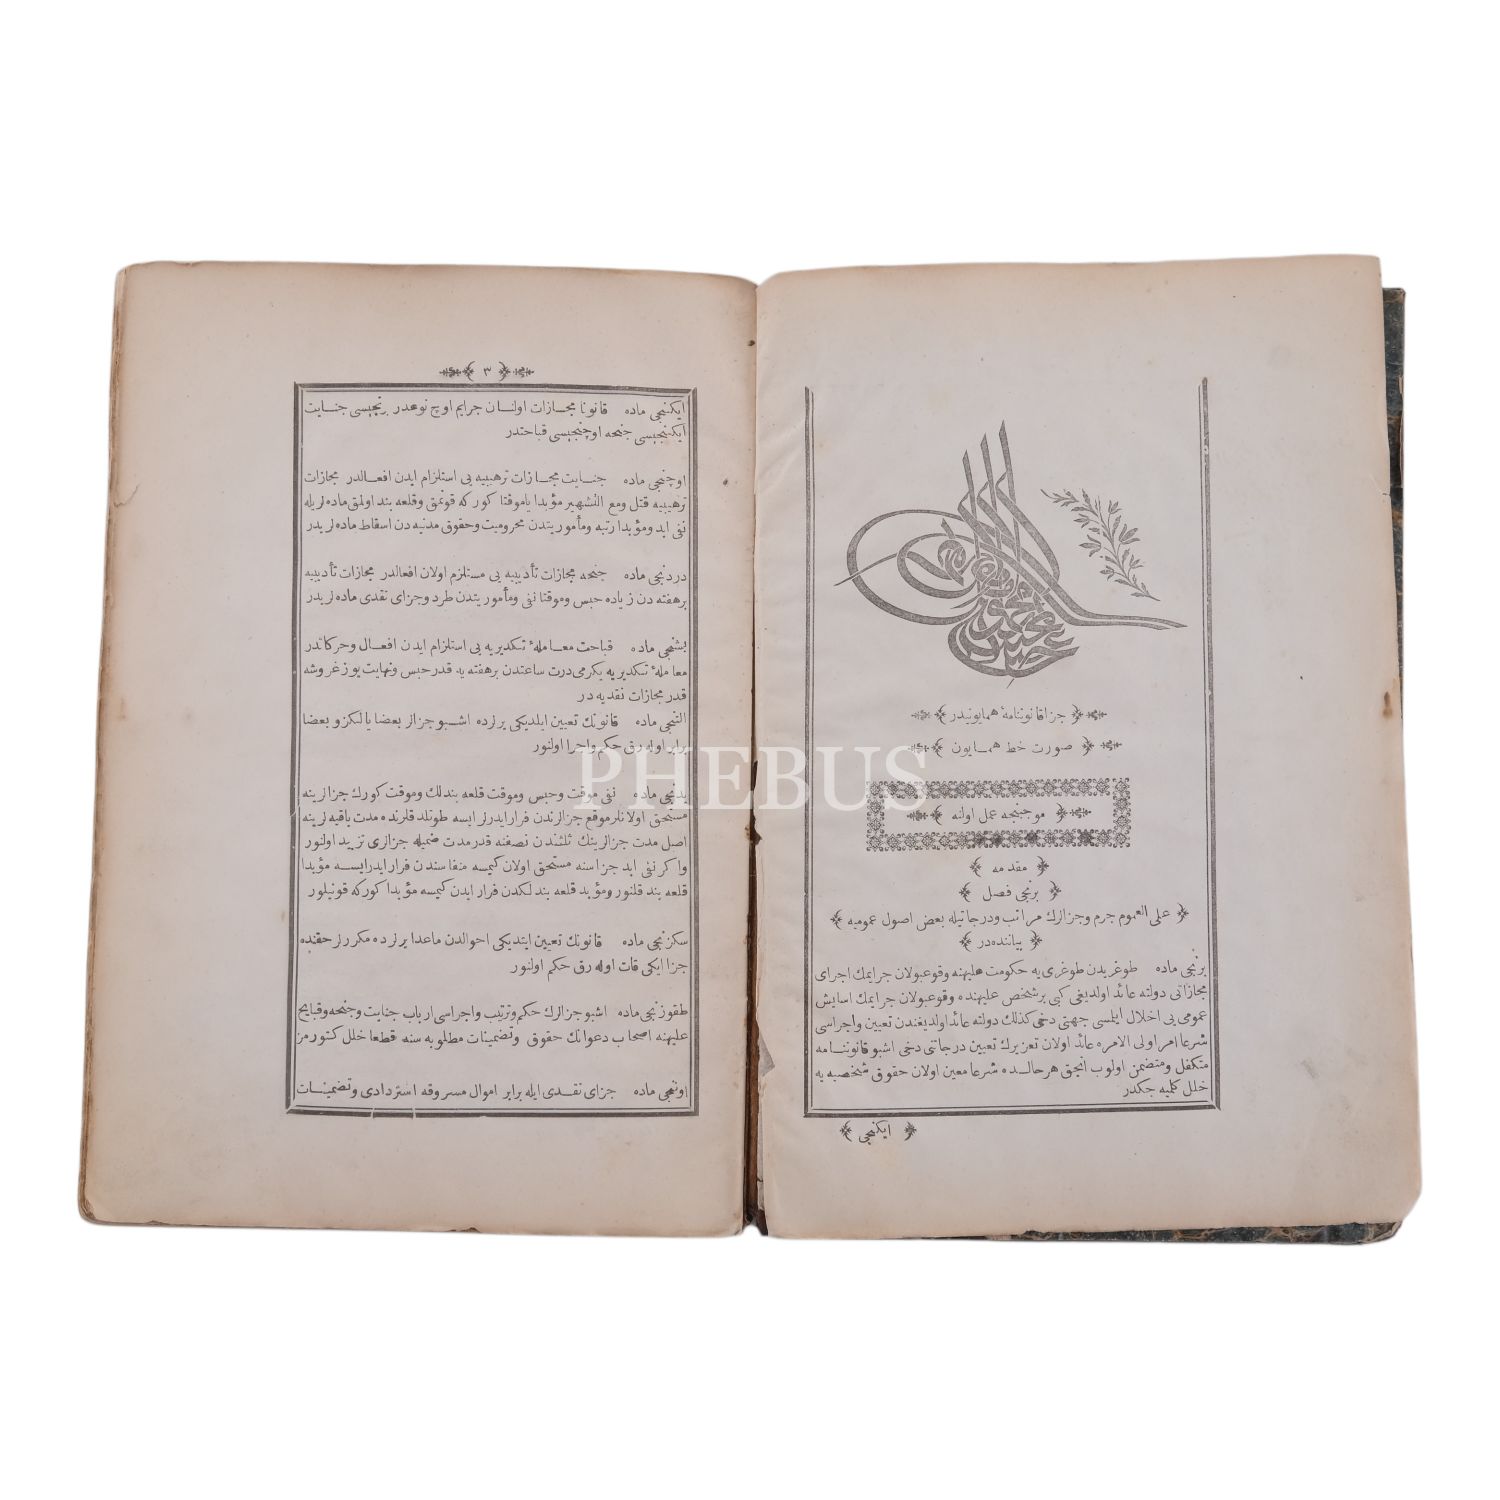 جزا قانوننامهٔ همایونیدر
صورت خط همایون
موجبنجه عمل اولنه
مقدمه
برنجی فصل
علی العموم جرم وجزالرك مراتب ودرجاتیله بعض اصول عمومیه
بیاننده در
برنجی ماده طوغریدن طوغری یه حکومت علیهنه وقوعبولان جرایمك اجرای
مجازاتی دولته عائد اولدیغی کبی برشخص علیهنده وقوعبولان جرایمك اسایش
عمومی یی اخلال ایلمسی جهتی دخی کذلك دولته عائد اولدیغندن تعیین واجراسی
شرعا امر اولی الامره عائد اولان تعزیرك تعیین درجاتی دخی اشبو قانوننامه
متکفل ومتضمن اولوب انجق هرحالده شرعا معین اولان حقوق شخصیه یه
خلل کلمیه جکدر
ایکنجی
٣
ایکنجی ماده قانونا مجازات اولنان جرایم اوچ نوعدر برنجیسی جنایت
ایکنجیسی جنحه اوچنجیسی قباحتدر
اوچنجی ماده جنایت مجازات ترهیبیه یی استلزام ایدن افعالدر مجازات
ترهیبیه قتل ومع التشهیر مؤبدا یاموقتا کورکه قونمق وقلعه بند اولمق ماده لریله
نفی ابد ومؤبدا رتبه ومأموریتدن محرومیت وحقوق مدنیه دن اسقاط ماده لریدر
دردنجی ماده جنحه مجازات تأدیبیه یی مستلزم اولان افعالدر مجازات تأدیبیه
برهفته دن زیاده حبس وموقتا نفی ومأموریتدن طرد وجزای نقدی ماده لریدر
بشنجی ماده قباحت معاملهٔ تکدیریه یی استلزام ایدن افعال وحرکاتدر
معاملهٔ تکدیریه یکرمی درت ساعتدن برهفته یه قدر حبس ونهایت یوز غروشه
قدر مجازات نقدیه در
التنجی ماده قانونك تعیین ایلدیکی یرلرده اشبو جزالر بعضا یالکز وبعضا
برابر اوله رق حکم واجرا اولنور
یدنجی ماده نفی موقت وحبس وموقت قلعه بندلك وموقت کورك جزالرینه
مستحق اولانلر موقع جزالرندن فرار ایدرلر ایسه طوتلدقلرنده مدت باقیه لرینه
اصل مدت جزالرینك ثلثندن نصفنه قدر مدت ضمیله جزالری تزیید اولنور
واکر نفی ابد جزاسنه مستحق اولان کیمسه منفاسندن فرار ایدرایسه مؤبدا
قلعه بند قلنور ومؤبد قلعه بندلکدن فرار ایدن کیمسه مؤبدا کورکه قونیلور
سکزنجی ماده قانونك تعیین ایتدیکی احوالدن ماعدا یرلرده مکررلر حقنده
جزا ایکی قات اوله رق حکم اولنور
طقوزنجی ماده اشبو جزالرك حکم وترتیب واجراسی ارباب جنایت وجنحه وقبایح
علیهنه اصحاب دعوانك حقوق وتضمینات مطلوبه سنه قطعا خلل کتورمز
اوننجی ماده جزای نقدی ایله برابر اموال مسروقه استردادی وتضمینات
PHEBUS